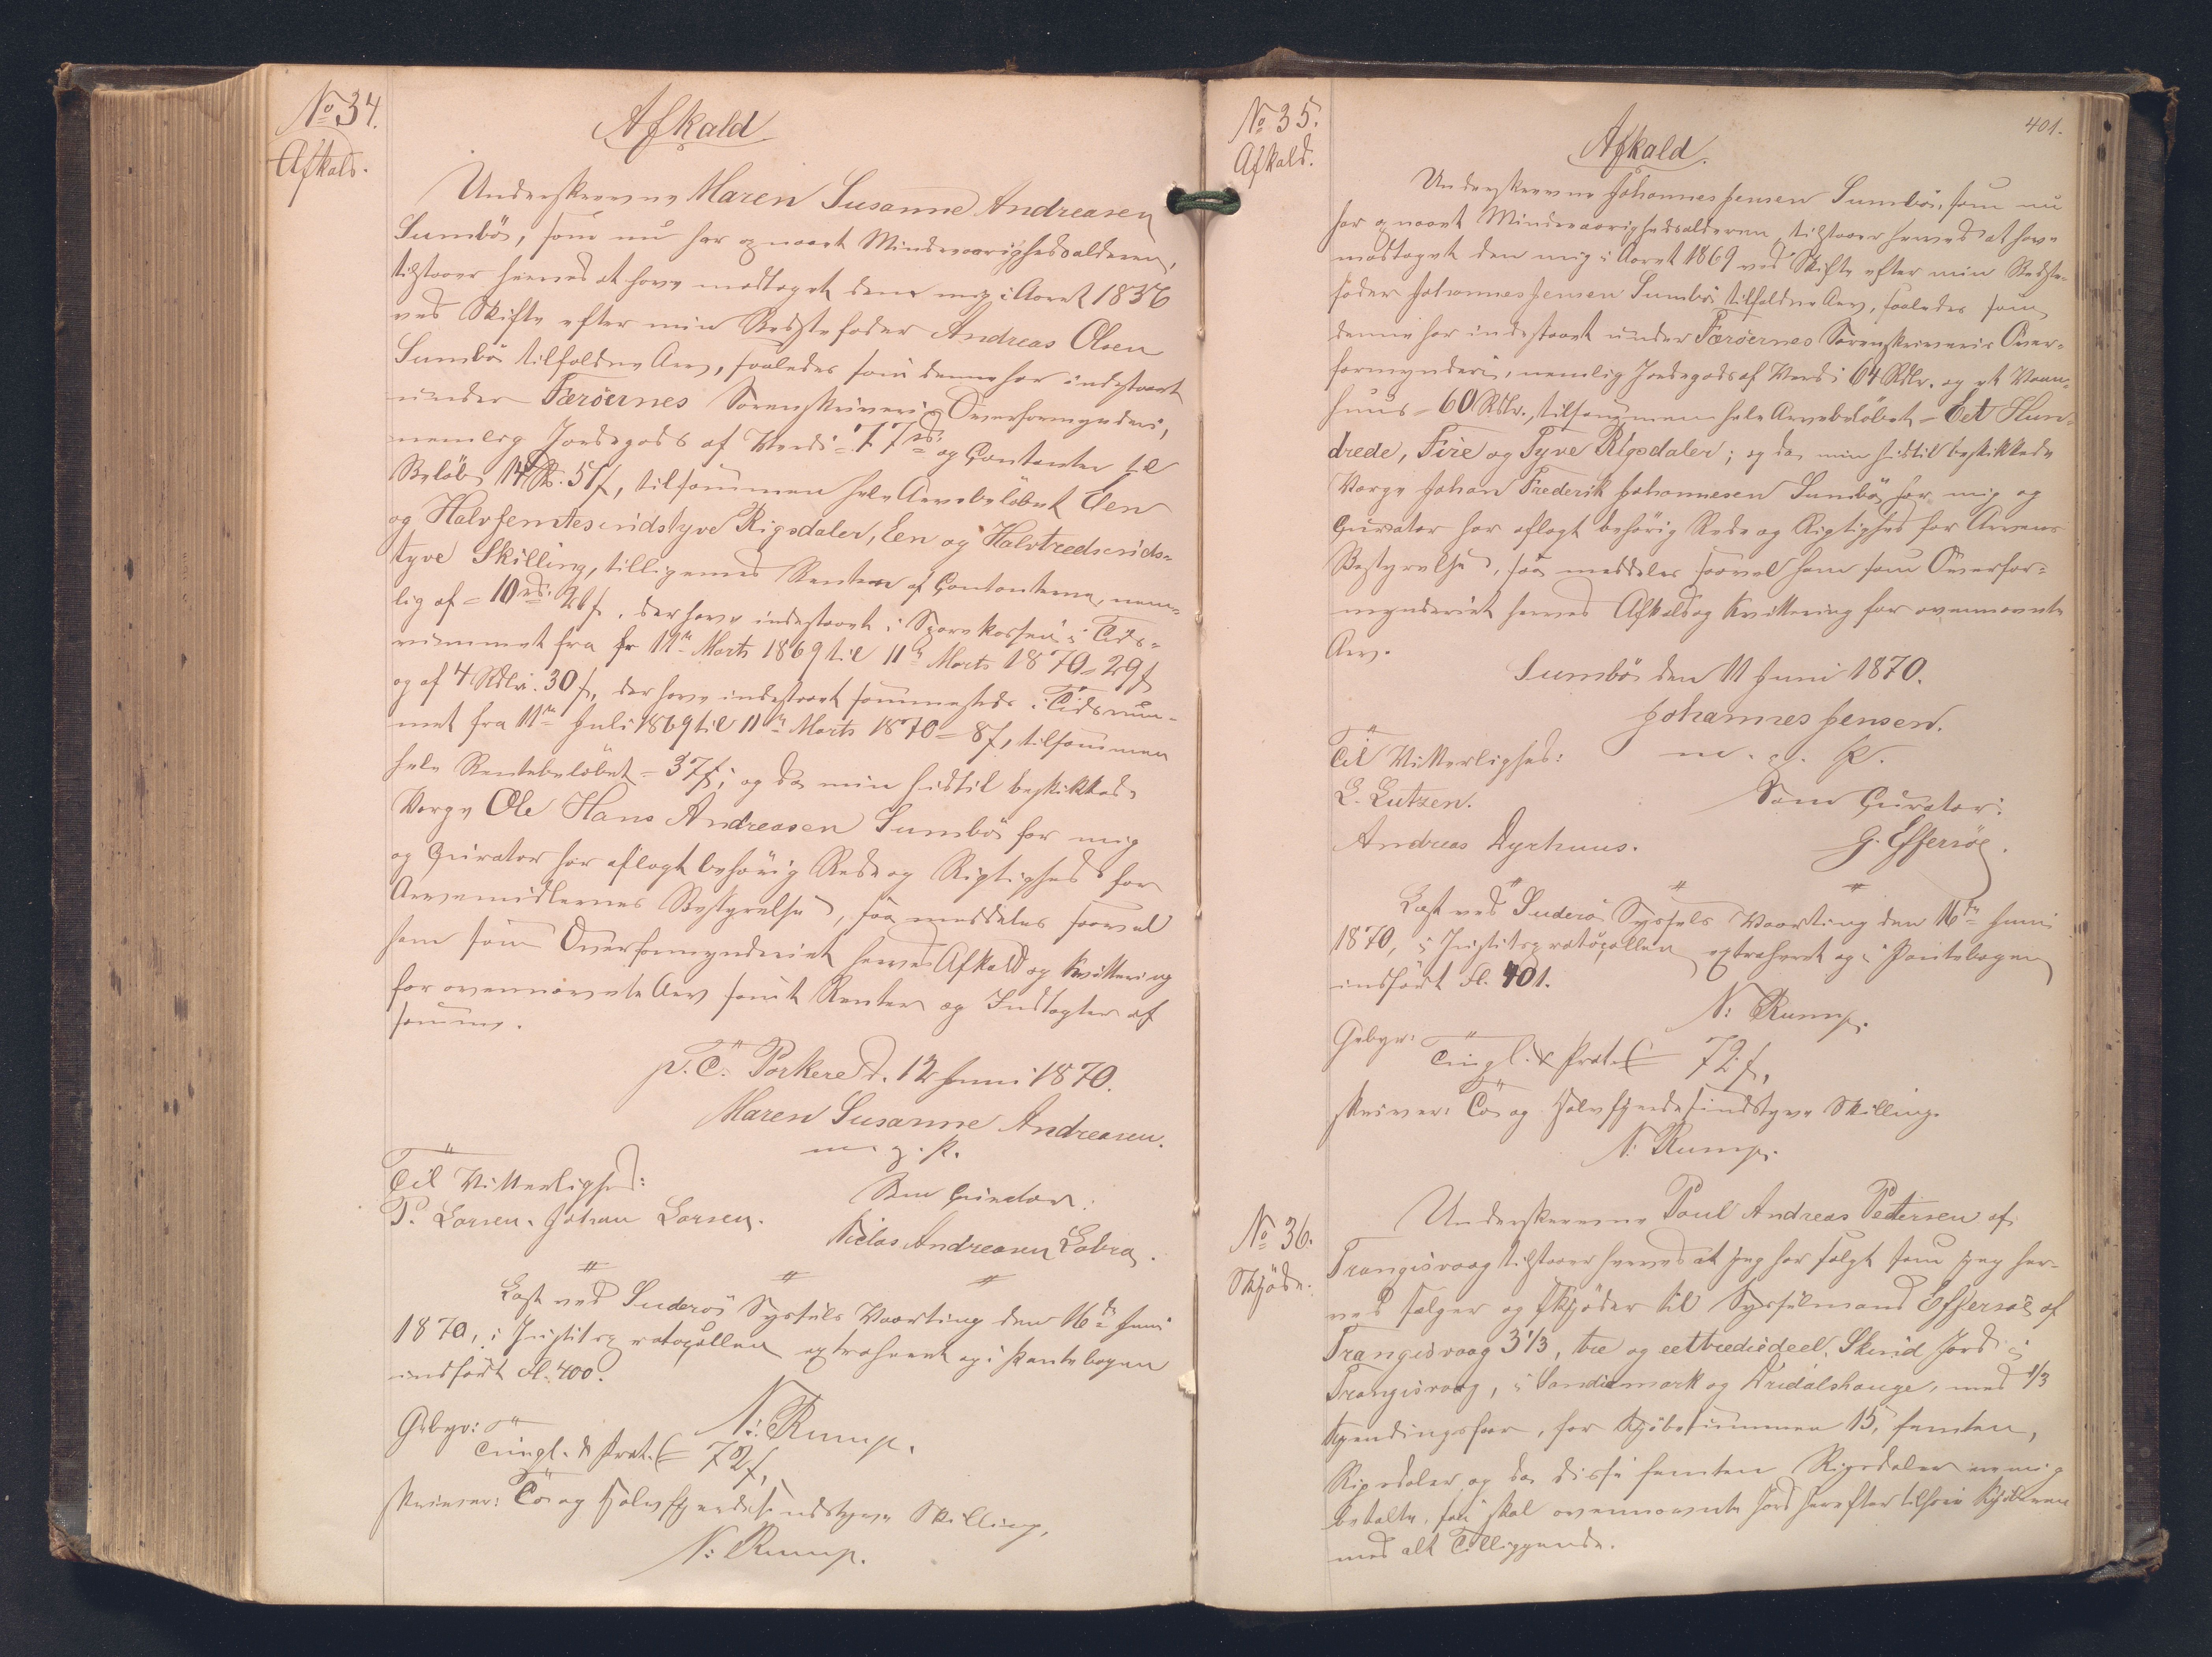 No 34.
Afkald.
Afkald
Underskrevne Maren Susanne Andreasen
Sumbö, som nu har opnaaet Mindreaarighedsalderen,
tilstaaer herved at have modtaget den mig i Aaret 1836
ved Skifte efter min Bedstefader Andreas Olsen
Sumbö tilfaldne Arv, saaledes som denne har indestaaet
under Færöernes Sorenskriveries Overformynderi,
nemlig Jordegods af Værdi = 77 rd. og Contanter til
Beløb 14 Rd. 51 f, tilsammen hele Arvebeløbet Een
og Halvfemtesindstyve Rigsdaler, Een og Halvtredsinds-
tyve Skilling, tilligemed Renten af Contanterne, nem-
lig af = 10 rd. 21 f, der have indestaaet i Sparekassen i Tids-
rummet fra 11te Marts 1869 til 11te Marts 1870 = 29 f
og af 4 Rdlr. 30 f, der have indestaaet sammesteds i Tidsrum-
met fra 11te Juli 1869 til 11te Marts 1870 = 8 f, tilsammen
hele Rentebeløbet = 37 f; og da min hidtil beskikkede
Værge Ole Hans Andreasen Sumbö for mig
og Curator har aflagt behörig Rede og Rigtighed for
Arvemidlernes Bestyrelse, saa meddeles saavel
ham som Overformynderiet herved Afkald og Kvittering
for ovennævnte Arv samt Renter og Indtægter af
samme.
p. T. Porkere d. 12 Juni 1870.
Maren Susanne Andreasen.
m. p. P.
Til Vitterlighed:
Som Curator:
P. Larsen. Johan Larsen.
Niclas Andreasen Labra.
Læst ved Suderö Syssels Vaarting den 16de Juni
1870, i Justitsprotocollen extraheret og i Pantebogen
indført Fl. 400.
N: Rump.
Gebyr:
Tingl. & Prot. = 72 f,
skriver: To og Halvfjerdesindstyve Skilling.
N: Rump.
401.
No 35.
Afkald.
Afkald.
Underskrevne Johannes Jensen Sumbö, som nu
har opnaaet Mindreaarighedsalderen, tilstaaer herved at have
modtaget den mig i Aaret 1869 ved Skifte efter min Bedste-
fader Johannes Jensen Sumbö tilfaldne Arv, saaledes som
denne har indestaaet under Færöernes Sorenskriveris Over-
formynderi, nemlig Jordegods af Værdi 64 Rdlr. og et Vaan-
huus = 60 Rdlr., tilsammen hele Arvebeløbet = Eet Hun-
drede, Fire og Tyve Rigsdaler; og da min hidtil beskikkede
Værge Johan Frederik Johannesen Sumbö for mig og
Curator har aflagt behörig Rede og Rigtighed for Arvens
Bestyrelse, saa meddeles saavel ham som Overfor-
mynderiet herved Afkald og Kvittering for ovennævnte
Arv.
Sumbö den 11 Juni 1870.
Johannes Jensen.
m. p. P.
Til Vitterlighed:
L. Lutzen.
Som Curator:
Andreas Dyrhuus.
G. Effersøe.
Læst ved Suderö Syssels Vaarting den 16de Juni
1870, i Justitsprotocollen extraheret og i Pantebogen
indført Fl. 401.
N: Rump.
Gebyr:
Tingl. & Prot. = 72 f,
skriver: To og Halvfjerdesindstyve Skilling.
N. Rump.
No 36.
Skjøde.
Underskrevne Poul Andreas Pedersen af
Trangisvaag tilstaaer herved at jeg har solgt som jeg her-
ved sælger og skjøder til Sysselmand Effersøe af
Trangisvaag 3 1/3, tre og eettrediedeel, Skind Jord i
Trangisvaag, i Sandiemark og Dridalshauge, med 1/3
for Kjöbesummen 15, femten,
Rigsdaler og da disse femten Rigsdaler ere mig
betalte, saa skal ovennævnte Jord herefter tilhøre Kjöberen
med alt Tilliggende.